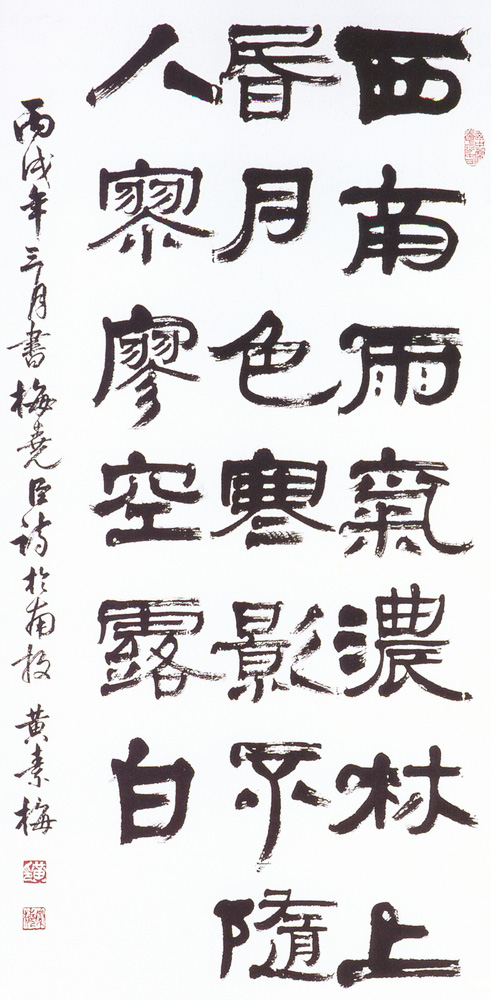 西南雨氣濃林上
昏月色寒影不隨
人寥廖空露白
丙戌年三月書梅堯臣詩於南投 黃素梅